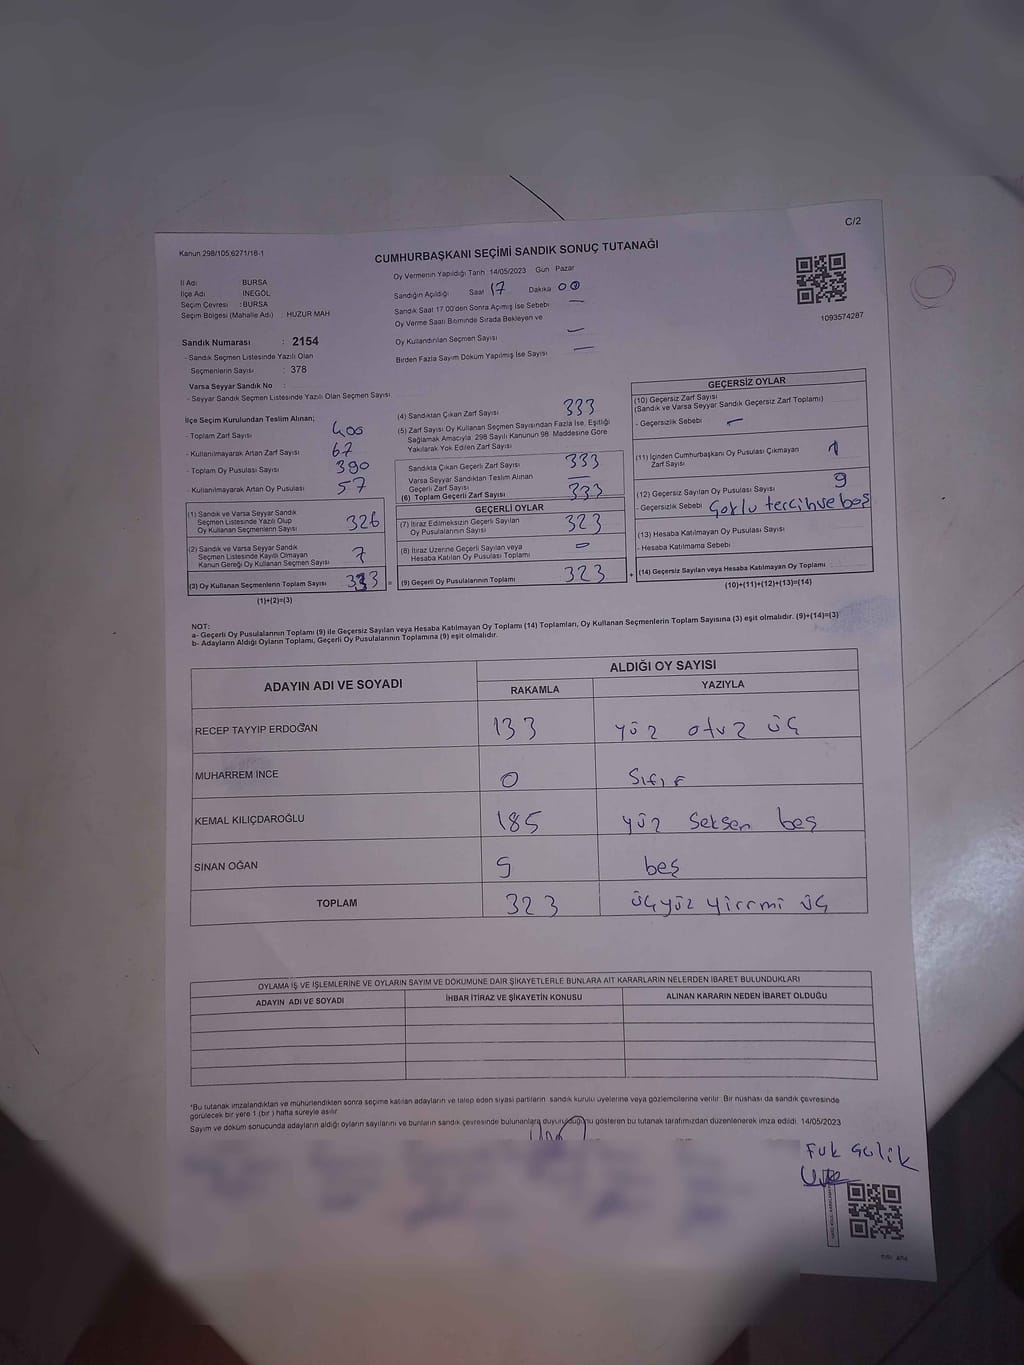 C/2
Kanun 298/105,6271/18-1
CUMHURBAŞKANI SEÇİMİ SANDIK SONUÇ TUTANAĞI
İl Adı BURSA
İlçe Adı İNEGÖL
Seçim Çevresi : BURSA
Seçim Bölgesi (Mahalle Adı) : HUZUR MAH
Oy Vermenin Yapıldığı Tarih 14/05/2023 Gün Pazar
Sandığın Açıldığı Saat 17 Dakika 00
Sandık Saat 17 00'den Sonra Açımış İse Sebebi —
Oy Verme Saati Bitiminde Sırada Bekleyen ve
Oy Kullandırılan Seçmen Sayısı —
Birden Fazla Sayım Döküm Yapılmış İse Sayısı —
1093574287
Sandık Numarası : 2154
- Sandık Seçmen Listesinde Yazılı Olan
Seçmenlerin Sayısı : 378
Varsa Seyyar Sandık No :
- Seyyar Sandık Seçmen Listesinde Yazılı Olan Seçmen Sayısı
İlçe Seçim Kurulundan Teslim Alınan;
- Toplam Zarf Sayısı 400
- Kullanılmayarak Artan Zarf Sayısı 67
- Toplam Oy Pusulası Sayısı 390
- Kullanılmayarak Artan Oy Pusulası 57
(1) Sandık ve Varsa Seyyar Sandık
Seçmen Listesinde Yazılı Olup
Oy Kullanan Seçmenlerin Sayısı 326
(2) Sandık ve Varsa Seyyar Sandık
Seçmen Listesinde Kayıtlı Olmayan
Kanun Gereği Oy Kullanan Seçmen Sayısı 7
(3) Oy Kullanan Seçmenlerin Toplam Sayısı 333 =
(1)+(2)=(3)
(4) Sandıktan Çıkan Zarf Sayısı 333
(5) Zarf Sayısı Oy Kullanan Seçmen Sayısından Fazla İse, Eşitliği
Sağlamak Amacıyla 298 Sayılı Kanunun 98. Maddesine Göre
Yakılarak Yok Edilen Zarf Sayısı
Sandıkta Çıkan Geçerli Zarf Sayısı 333
Varsa Seyyar Sandıktan Teslim Alınan
Geçerli Zarf Sayısı —
(6) Toplam Geçerli Zarf Sayısı 333
GEÇERLİ OYLAR
(7) İtiraz Edilmeksizin Geçerli Sayılan
Oy Pusulalarının Sayısı 323
(8) İtiraz Üzerine Geçerli Sayılan veya
Hesaba Katılan Oy Pusulası Toplamı —
(9) Geçerli Oy Pusulalarının Toplamı 323 +
GEÇERSİZ OYLAR
(10) Geçersiz Zarf Sayısı
(Sandık ve Varsa Seyyar Sandık Geçersiz Zarf Toplamı)
- Geçersizlik Sebebi —
(11) İçinden Cumhurbaşkanı Oy Pusulası Çıkmayan
Zarf Sayısı 1
(12) Geçersiz Sayılan Oy Pusulası Sayısı 9
- Geçersizlik Sebebi Çoklu tercih ve boş
(13) Hesaba Katılmayan Oy Pusulası Sayısı
- Hesaba Katılmama Sebebi
(14) Geçersiz Sayılan veya Hesaba Katılmayan Oy Toplamı
(10)+(11)+(12)+(13)=(14)
NOT:
a- Geçerli Oy Pusulalarının Toplamı (9) ile Geçersiz Sayılan veya Hesaba Katılmayan Oy Toplamı (14) Toplamları, Oy Kullanan Seçmenlerin Toplam Sayısına (3) eşit olmalıdır. (9)+(14)=(3)
b- Adayların Aldığı Oyların Toplamı, Geçerli Oy Pusulalarının Toplamına (9) eşit olmalıdır.
ADAYIN ADI VE SOYADI
ALDIĞI OY SAYISI
RAKAMLA YAZIYLA
RECEP TAYYİP ERDOĞAN 133 yüz otuz üç
MUHARREM İNCE 0 Sıfır
KEMAL KILIÇDAROĞLU 185 yüz seksen beş
SİNAN OĞAN 5 beş
TOPLAM 323 üçyüz yirmi üç
OYLAMA İŞ VE İŞLEMLERİNE VE OYLARIN SAYIM VE DÖKÜMÜNE DAİR ŞİKAYETLERLE BUNLARA AİT KARARLARIN NELERDEN İBARET BULUNDUKLARI
ADAYIN ADI VE SOYADI İHBAR İTİRAZ VE ŞİKAYETİN KONUSU ALINAN KARARIN NEDEN İBARET OLDUĞU
*Bu tutanak imzalandıktan ve mühürlendikten sonra seçime katılan adayların ve talep eden siyasi partilerin sandık kurulu üyelerine veya gözlemcilerine verilir. Bir nüshası da sandık çevresinde
görülecek bir yere 1 (bir) hafta süreyle asılır
Sayım ve döküm sonucunda adayların aldığı oyların sayılarını ve bunların sandık çevresinde bulunanlara duyurulduğunu gösteren bu tutanak tarafımızdan düzenlenerek imza edildi. 14/05/2023